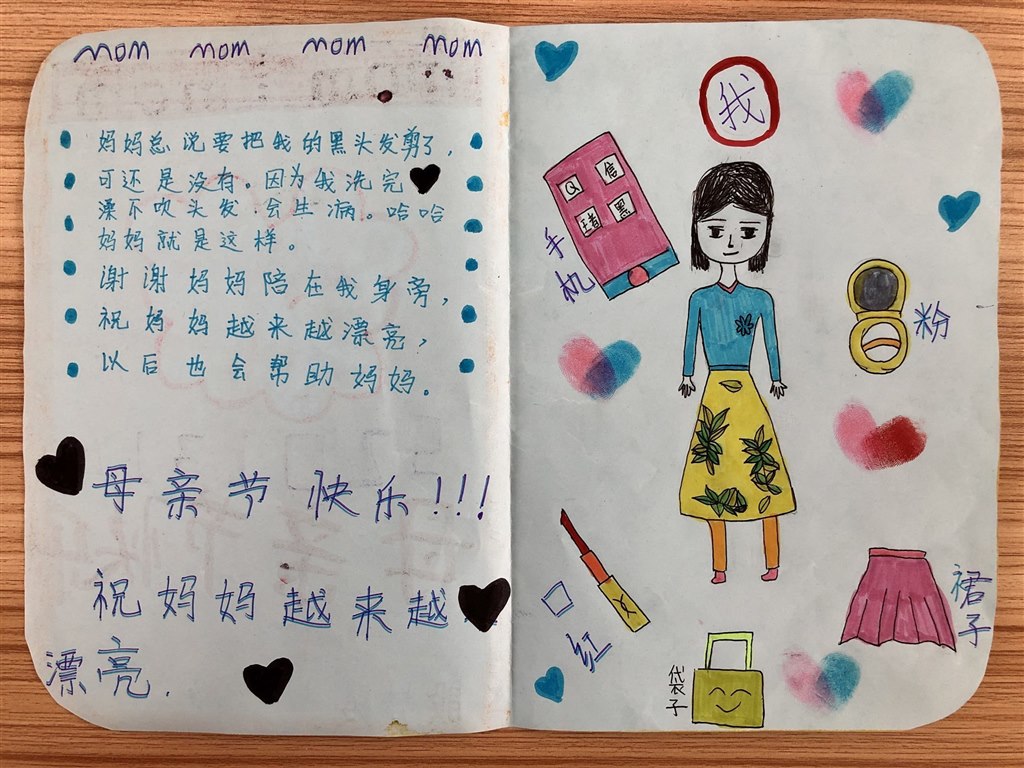 mom mom mom mom
妈妈总说要把我的黑头发剪了,
可还是没有。因为我洗完
澡不吹头发 会生病。哈哈
妈妈就是这样。
谢谢妈妈陪在我身旁,
祝妈妈越来越漂亮,
以后也会帮助妈妈。
母亲节快乐!!!
祝妈妈越来越
漂亮.
我
Q 信
黑
手机
粉
口红
裙子
袋子